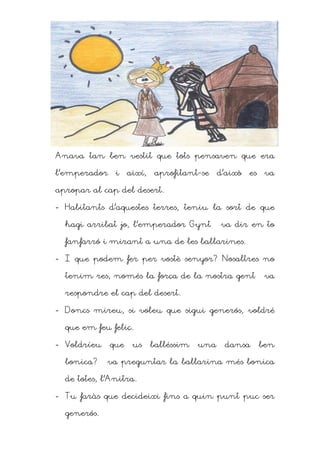 Anava tan ben vestit que tots pensaven que era
l'emperador i així, aprofitant-se d'això es va
apropar al cap del desert.
- Habitants d'aquestes terres, teniu la sort de que
hagi arribat jo, l'emperador Gynt va dir en to
fanfarró i mirant a una de les ballarines.
- I que podem fer per vostè senyor? Nosaltres no
tenim res, només la força de la nostra gent va
respondre el cap del desert.
- Doncs mireu, si voleu que sigui generós, voldré
que em feu feliç.
- Voldrieu que us balléssim una dansa ben
bonica? va preguntar la ballarina més bonica
de totes, l'Anitra.
- Tu faràs que decideixi fins a quin punt puc ser
generós.